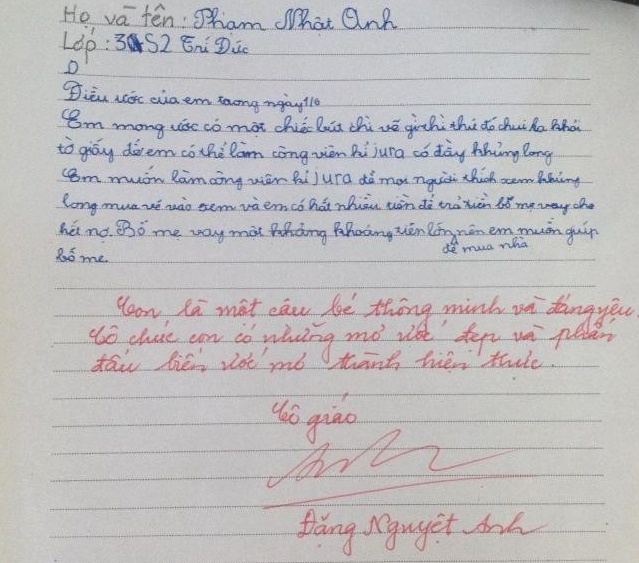 Họ và tên: Phạm Nhật Anh
Lớp: 3 S2 Trí Đức
D
Điều ước của em trong ngày 1/6
Em mong ước có một chiếc bút chì vẽ gì thì thứ đó chui ra khỏi
tờ giấy để em có thể làm công viên kỉ jura có đầy khủng long
Em muốn làm công viên kỉ jura để mọi người thích xem khủng
long mua vé vào xem và em có rất nhiều tiền để trả tiền bố mẹ vay cho
hết nợ. Bố mẹ vay một khoảng tiền lớn nên em muốn giúp
để mua nhà
bố mẹ.
Con là một cậu bé thông minh và đáng yêu.
Cô chúc con có những mơ ước đẹp và phấn
đấu biến ước mơ thành hiện thực.
Cô giáo
Đặng Nguyệt Anh